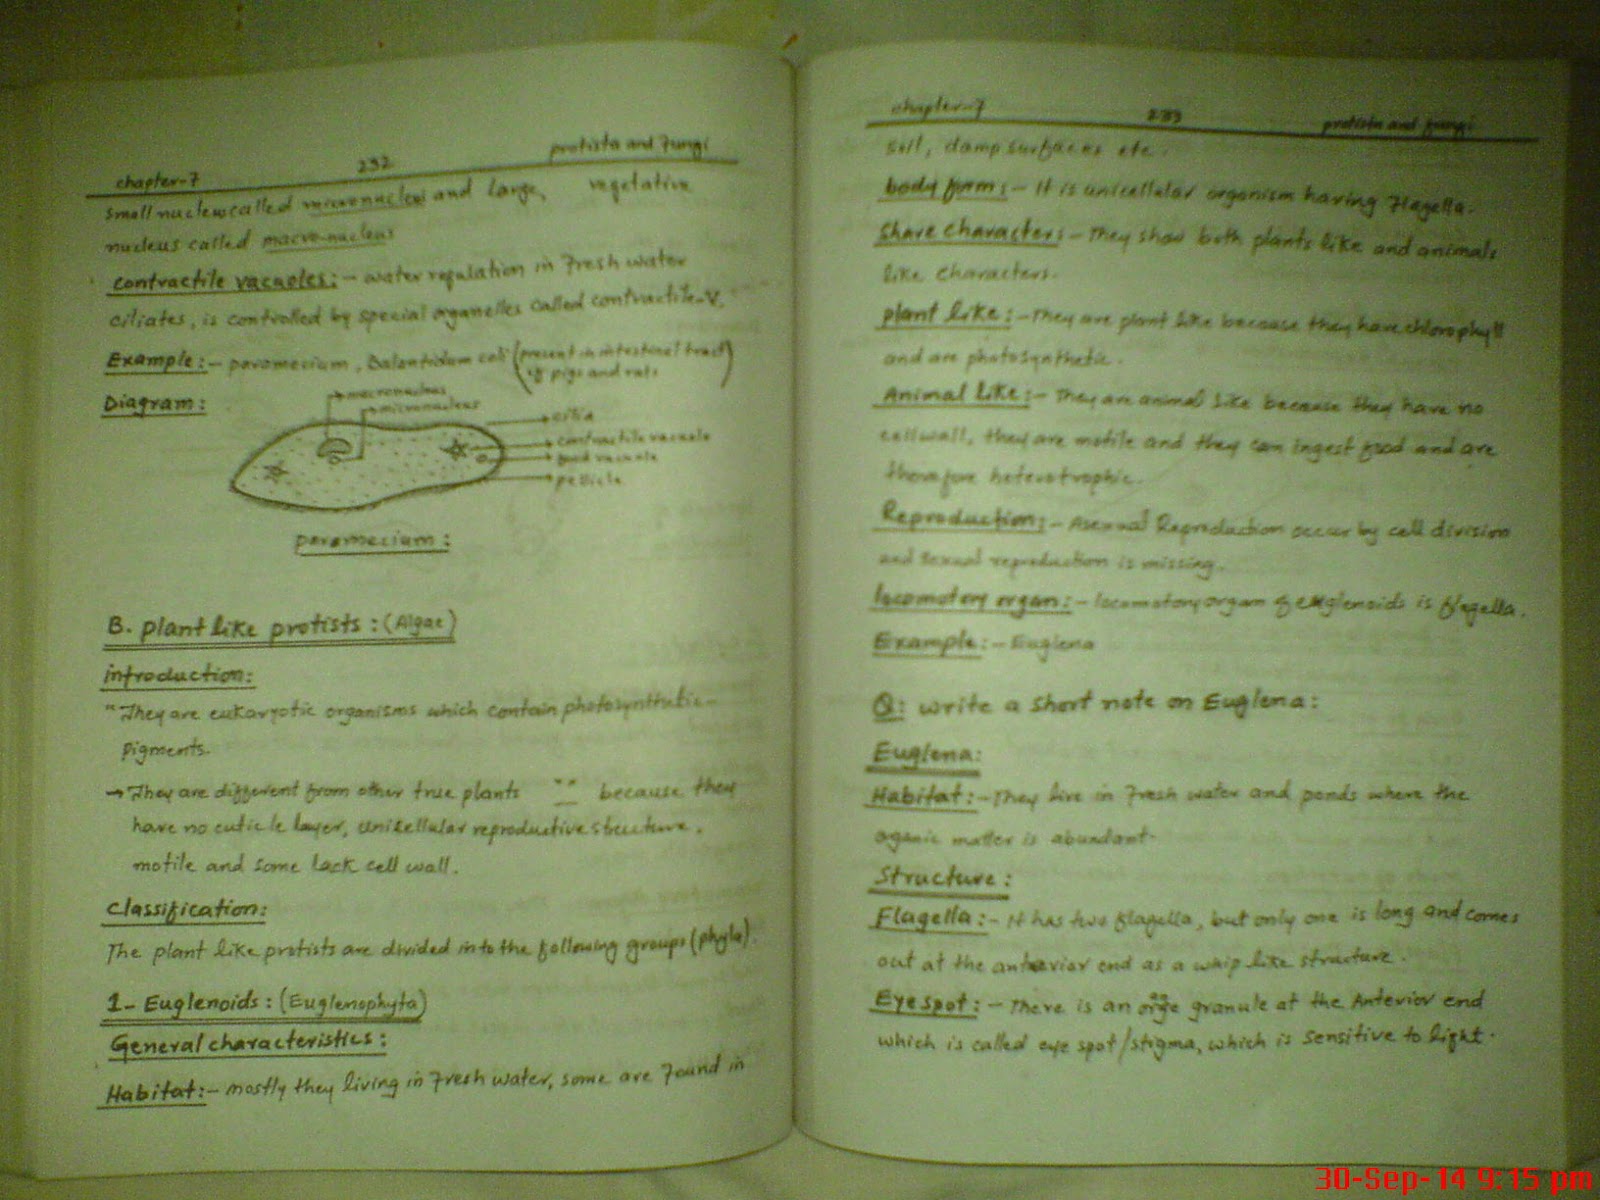 chapter-7 232 protista and Fungi
small nucleus called micronucleus and large, vegetative
nucleus called macro-nucleus
contractile vacuoles:- water regulation in Fresh water
ciliates, is controlled by special organelles called contractile-V.
Example:- paramecium, Balantidum coli (present in intestinal tract
of pigs and rats)
Diagram:
macronucleus
micronucleus
cilia
contractile vacuole
food vacuole
pellicle
paramecium:
B. plant like protists: (Algae)
introduction:
"They are eukaryotic organisms which contain photosynthetic-
pigments.
→ They are different from other true plants " " because they
have no cuticle layer, unicellular reproductive structure,
motile and some lack cell wall.
classification:
The plant like protists are divided into the following groups (phyla).
1- Euglenoids: (Euglenophyta)
General characteristics:
Habitat:- mostly they living in Fresh water, some are Found in
chapter-7 233 protista and fungi
soil, damp surfaces etc.
body form:- It is unicellular organism having Flagella.
share characters:- They show both plants like and animals
like characters.
plant like:- They are plant like because they have chlorophyll
and are photosynthetic.
Animal like:- They are animal like because they have no
cell wall, they are motile and they can ingest food and are
therefore heterotrophic.
Reproduction:- Asexual Reproduction occur by cell division
and sexual reproduction is missing.
locomotory organ:- locomotory organ of euglenoids is flagella.
Example:- Euglena
Q: write a short note on Euglena:
Euglena:
Habitat:- They live in Fresh water and ponds where the
oganic matter is abundant.
Structure:
Flagella:- It has two flagella, but only one is long and comes
out at the anterior end as a whip like structure.
Eye spot:- There is an granule at the Anterior end
which is called eye spot/stigma, which is sensitive to light.
30-Sep-14 9:15 pm